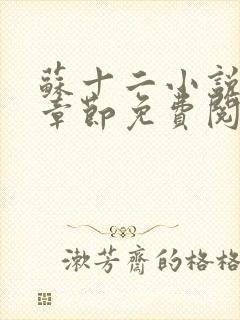 蘇十二小說
章節免費閱
漱芳齋的格格